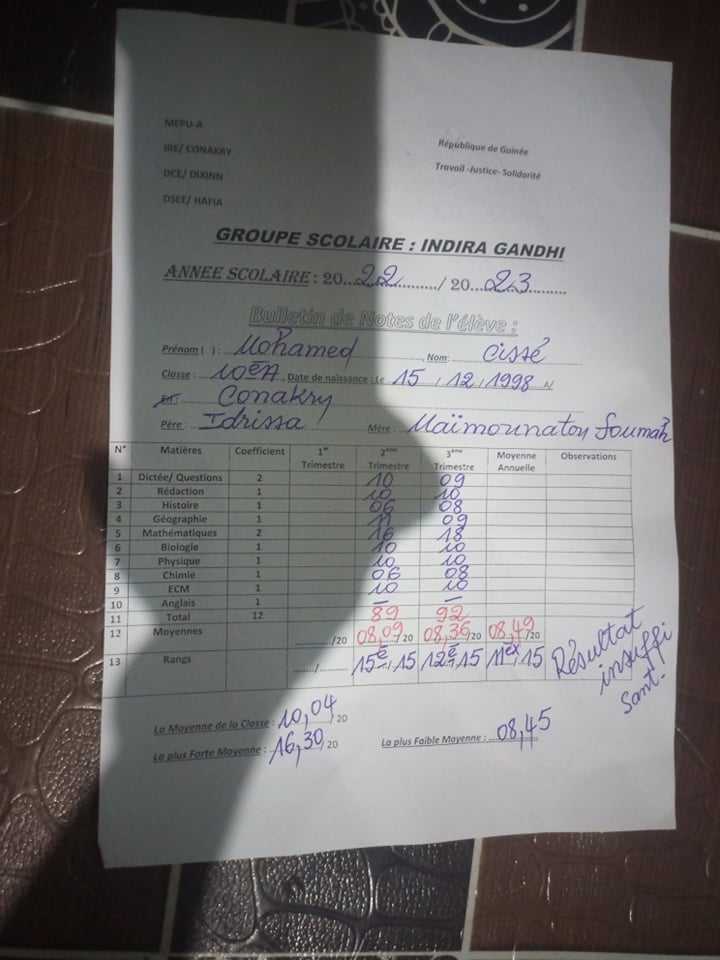 MEPU-A
IRE/ CONAKRY
DCE/ DIXINN
DSEE/ HAFIA
République de Guinée
Travail -Justice- Solidarité
GROUPE SCOLAIRE : INDIRA GANDHI
ANNEE SCOLAIRE : 20...22........./ 20...23.........
Bulletin de Notes de l'élève :
Prénom ( ) : Mohamed, Nom: Cissé
Classe : 10èA, Date de naissance : Le 15 / 12 / 1998 N
Conakry
Père : Idrissa Mère : Maïmounatou Soumah
N° Matières Coefficient 1er Trimestre 2ème Trimestre 3ème Trimestre Moyenne Annuelle Observations
1 Dictée/ Questions 2 10 09
2 Rédaction 1 10 10
3 Histoire 1 06 08
4 Géographie 1 11 09
5 Mathématiques 2 16 18
6 Biologie 1 10 10
7 Physique 1 10 10
8 Chimie 1 06 08
9 ECM 1 10 10
10 Anglais 1 – –
11 Total 12 89 92
12 Moyennes ........./20 08,09/20 08,36/20 08,49/20
13 Rangs ....../...... 15è/15 12è/15 11ex/15
Résultat
insuffi
sant.
La Moyenne de la Classe : 10,04/20
La plus Forte Moyenne : 16,30/20 La plus Faible Moyenne : 08,45